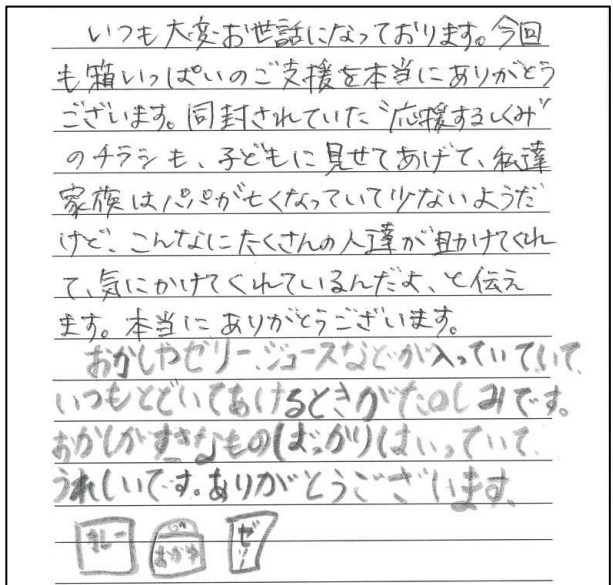 いつも大変お世話になっております。今回
も箱いっぱいのご支援を本当にありがとう
ございます。同封されていた“応援するしくみ”
のチラシも、子どもに見せてあげて、私達
家族はパパが亡くなっていて少ないようだ
けど、こんなにたくさんの人達が助けてくれ
て、気にかけてくれているんだよ、と伝え
ます。本当にありがとうございます。
おかしやゼリー、ジュースなどが入っていていて、
いつもとどいてあけるときがたのしみです。
おかしがすきなもの(ばっかり)はいっていて、
うれしいです。ありがとうございます。
カレー おかし ゼリー